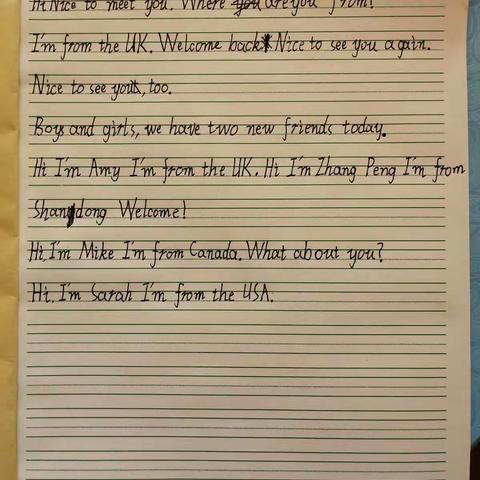 Hi Nice to meet you. Where you are you from?
I'm from the UK. Welcome back Nice to see you again.
Nice to see you, too.
Boys and girls, we have two new friends today.
Hi I'm Amy I'm from the UK. Hi I'm Zhang Peng I'm from
Shandong Welcome!
Hi, I'm Mike I'm from Canada. What about you?
Hi, I'm Sarah I'm from the USA.